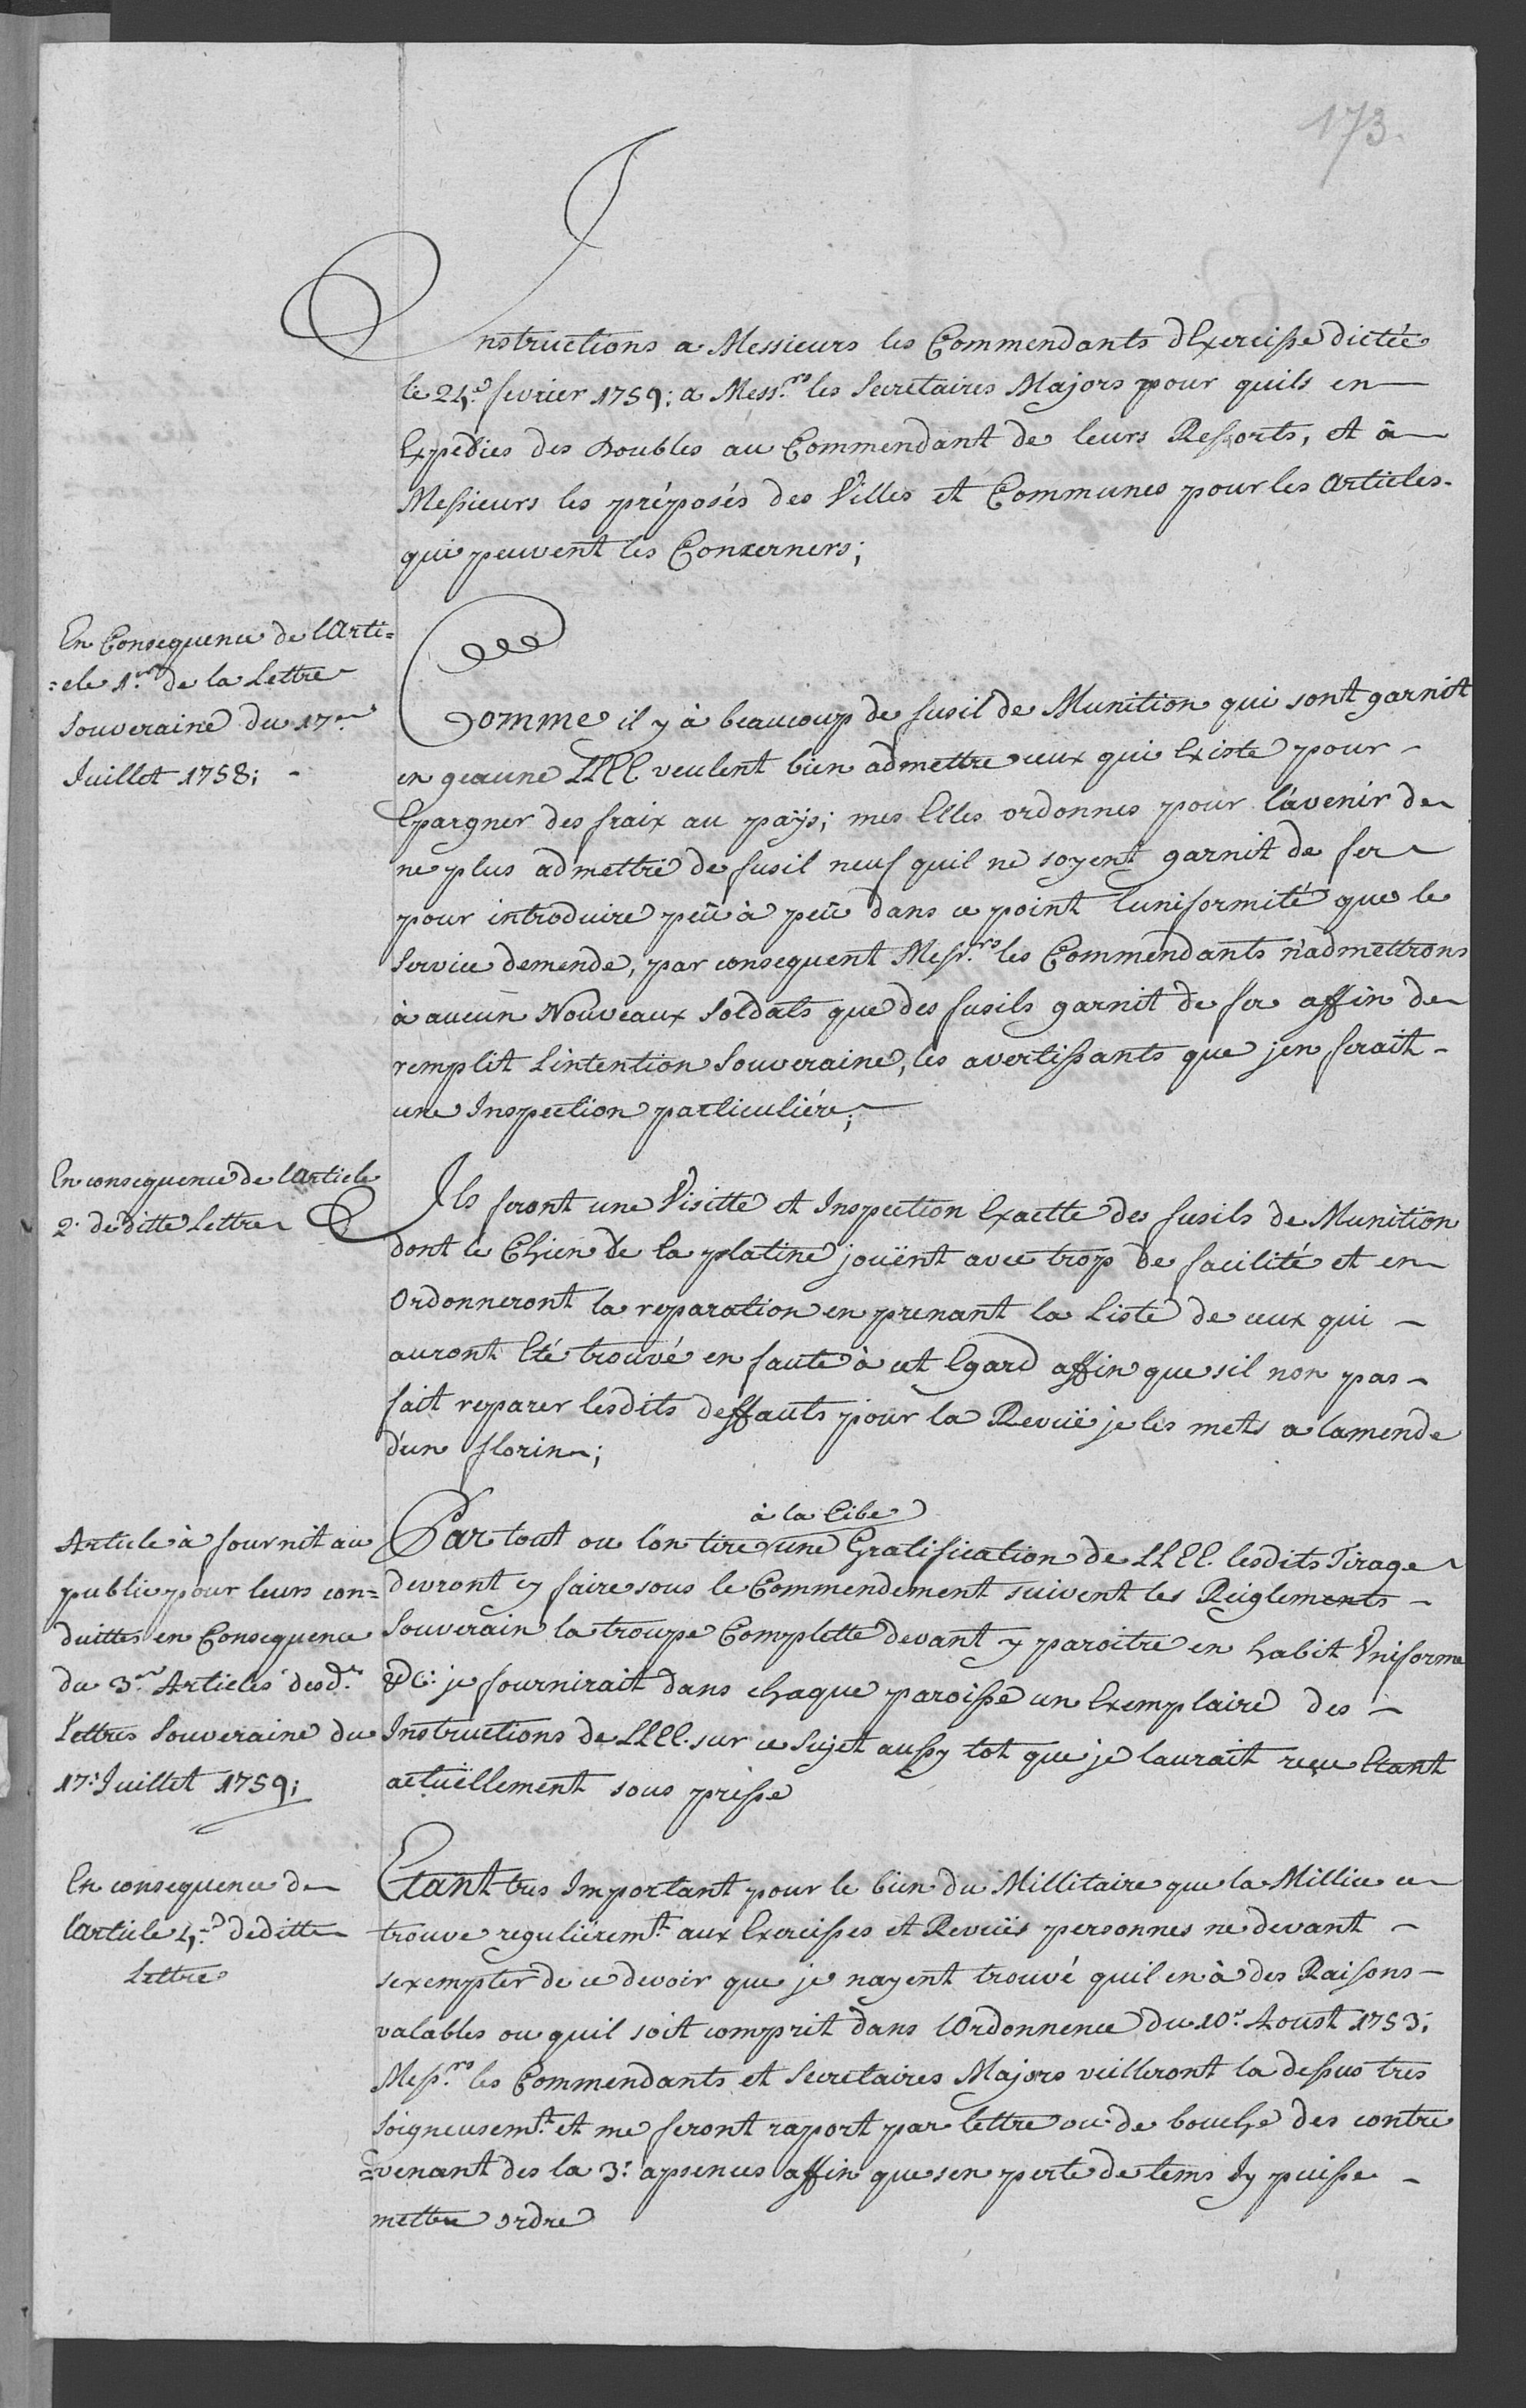 173.
Instructions a Messieurs les Commendants d'Exercisse dictée
le 24.e fevrier 1759; a Mess.rs les Secretaires Majors pour quils en
Expedies des Doubles au Commendant de leurs Ressorts, et à
Messieurs les préposés des Villes et Communes pour les Articles
qui peuvent les Conserners;
En Consequence de l'Arti=
=cle 1.er de la Lettre
Souveraine du 17.e
Juillet 1758;
Comme il y à beaucoup de fusil de Munition qui sont garnit
en geaune LLEE veulent bien admettre ceux qui Existe pour
Epargner des fraix au païs; mes Elles ordonnes pour l'avenir de
ne plus admettre de fusil neuf quil ne soyent garnit de fer
pour introduire peü à peü dans ce point l'uniformité que le
Service demende, par consequent Messr.rs les Commendants n'admettrons
à aucun Nouveaux Soldats que des fusils garnit de fer affin de
remplit L'intention Souveraine, les avertissants que jen ferait
une Inspection particuliére;
En consequence de l'Article
2. de ditte Lettre
Ils feront une Visitte et Inspection Exactte des fusils de Munition
dont le Chien de la platine joüent avec trop de facilité et en
Ordonneront la reparation en prenant la Liste de ceux qui
auront Eté trouvé en faute à cet Egard affin que sil non pas
fait reparer lesdits deffauts pour la Revüe je les mets a lamende
d'un florin;
Article à fournit au
public pour leurs con=
duittes en Consequence
du 3.me Articles desd.es
Lettres Souveraine du
17. Juillet 1759;
à la Cibe
Par tout ou l'on tire une Gratification de LLEE. lesdits Tirage
devront cy faire sous le Commendement suivent les Reiglements
Souverain la troupe Complette devant y paroitre en habit Uniforme
&C: je fournirait dans chaque paroisse un Exemplaire des
Instructions de LLEE. sur ce Sujet aussy tot que je laurait reçu Etant
actuëllement sous presse
En consequence de
l'article 4.e de ditte
Lettre
Etant tres Important pour le bien du Millitaire que la Millice ce
trouve reguliérem.t aux Exercisses et Revuës personnes ne devant
sexempter de ce devoir que je nayent trouvé quil en à des Raisons
valables ou quil soit comprit dans l'Ordonnence du 10.e Aoust 1753;
Mess.rs les Commendants et Secretaires Majors veilleront la dessus tres
soigneusem.t et me feront raport par lettre ou de bouche des contre
=venant des la 3.e apsences affin que sen perte de tems Jy puisse
mettre ordre